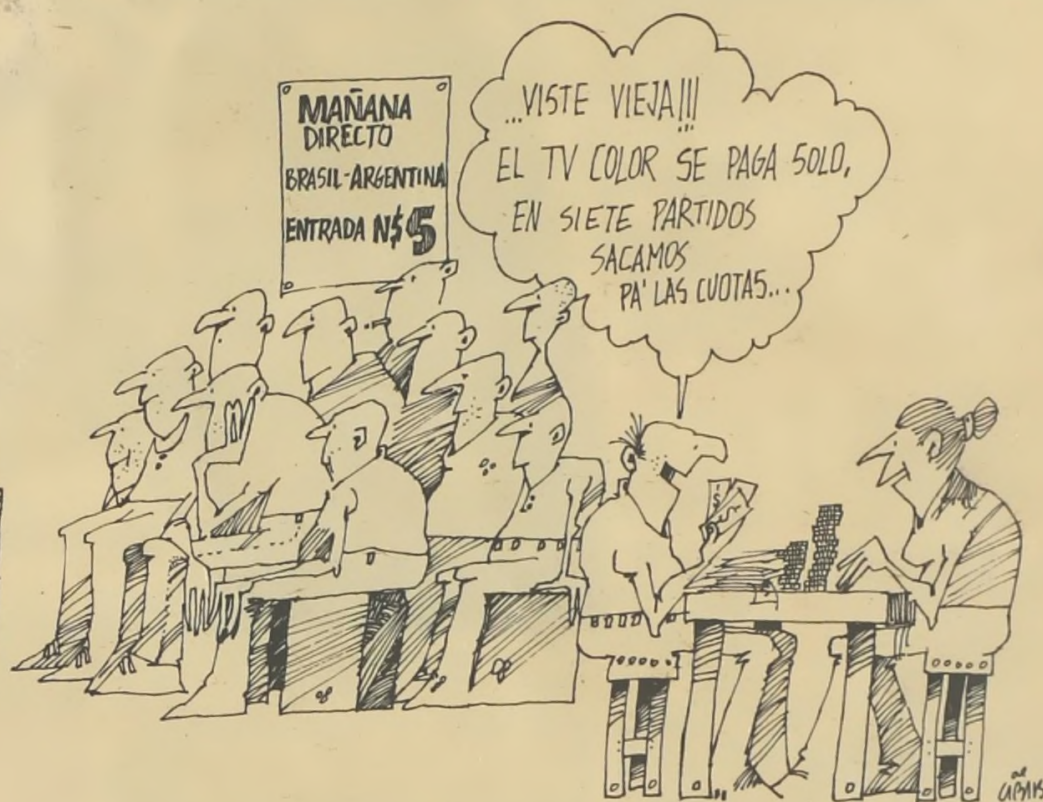 MAÑANA
DIRECTO
BRASIL-ARGENTINA
ENTRADA N$ 5
...VISTE VIEJA!!!
EL TV COLOR SE PAGA SOLO,
EN SIETE PARTIDOS
SACAMOS
PA' LAS CUOTAS...